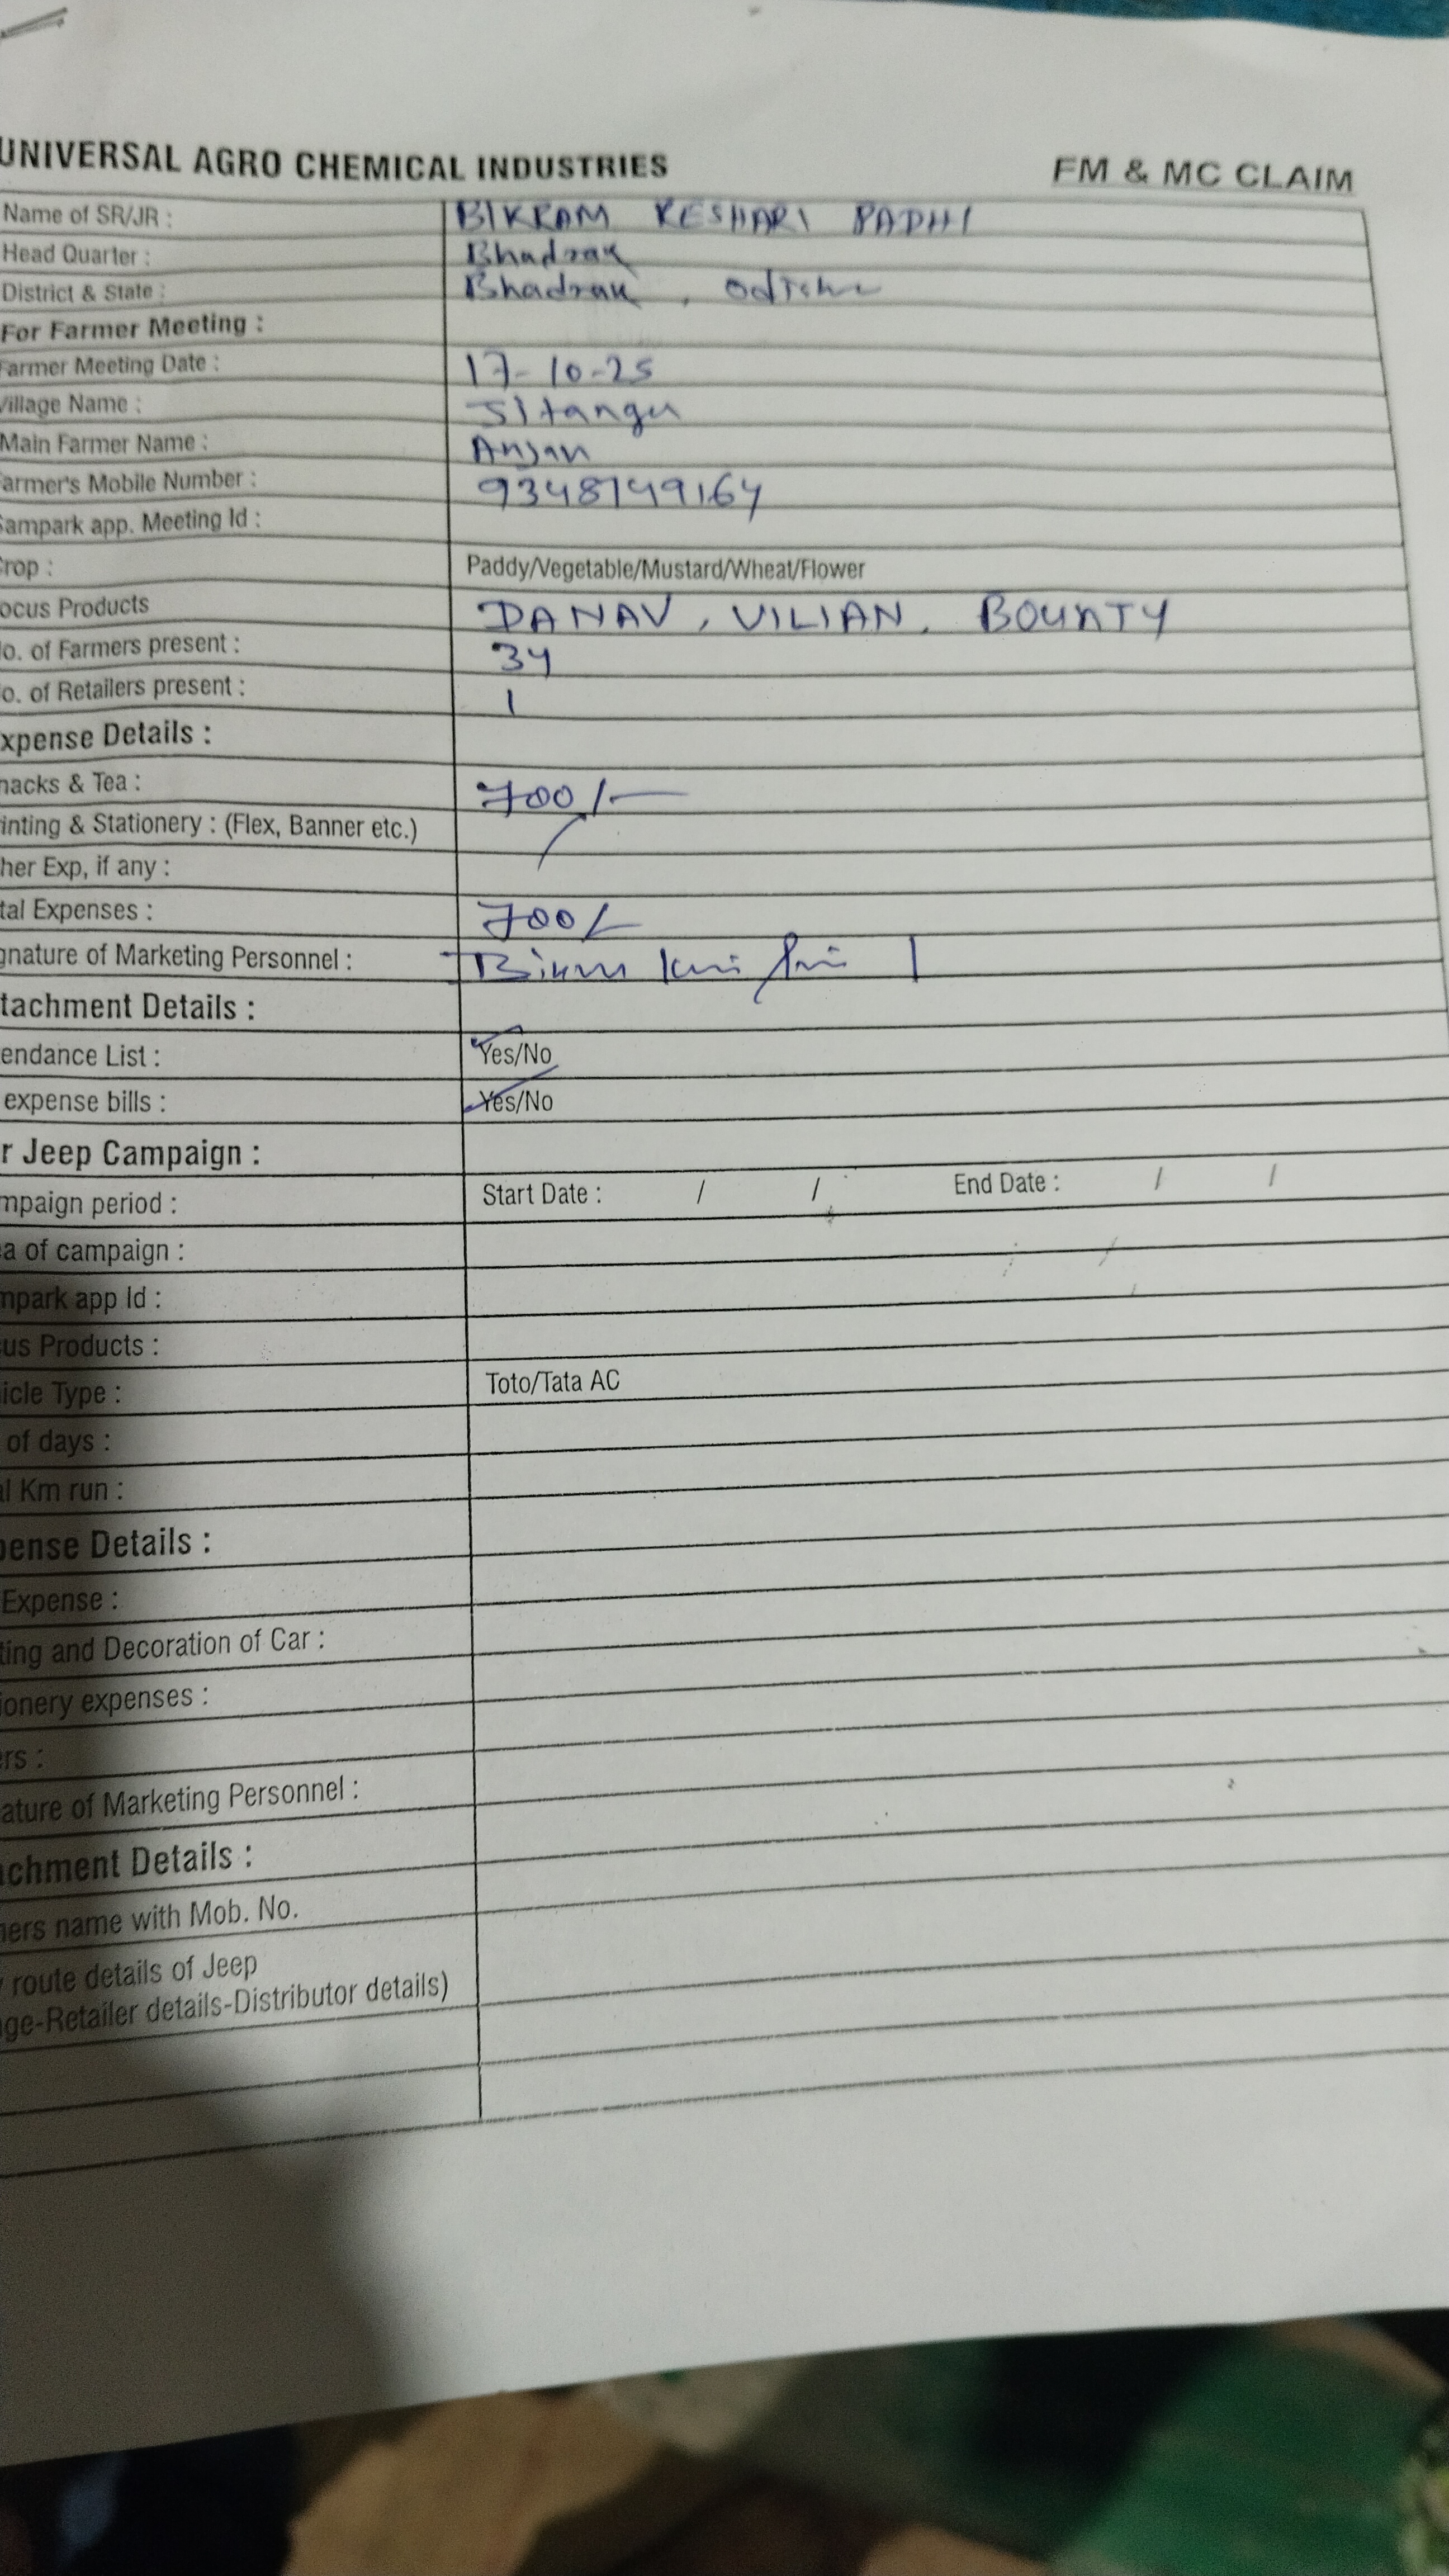 UNIVERSAL AGRO CHEMICAL INDUSTRIES FM & MC CLAIM
Name of SR/JR : BIKRAM KESHARI PADHI
Head Quarter : Bhadrak
District & State : Bhadrak , Odisha
For Farmer Meeting :
Farmer Meeting Date : 17-10-25
Village Name :
Main Farmer Name : Anjan
armer's Mobile Number : 9348149164
Sampark app. Meeting Id :
rop : Paddy/Vegetable/Mustard/Wheat/Flower
ocus Products DANAV , VILIAN , BOUNTY
o. of Farmers present : 34
o. of Retailers present : 1
xpense Details :
nacks & Tea : 700/-
inting & Stationery : (Flex, Banner etc.)
her Exp, if any :
tal Expenses : 700/-
gnature of Marketing Personnel :
tachment Details :
endance List : Yes/No
expense bills : Yes/No
r Jeep Campaign :
mpaign period : Start Date : / / End Date : / /
a of campaign :
mpark app Id :
us Products :
icle Type : Toto/Tata AC
of days :
l Km run :
pense Details :
Expense :
ting and Decoration of Car :
ionery expenses :
ers :
ature of Marketing Personnel :
chment Details :
ers name with Mob. No.
route details of Jeep
ge-Retailer details-Distributor details)